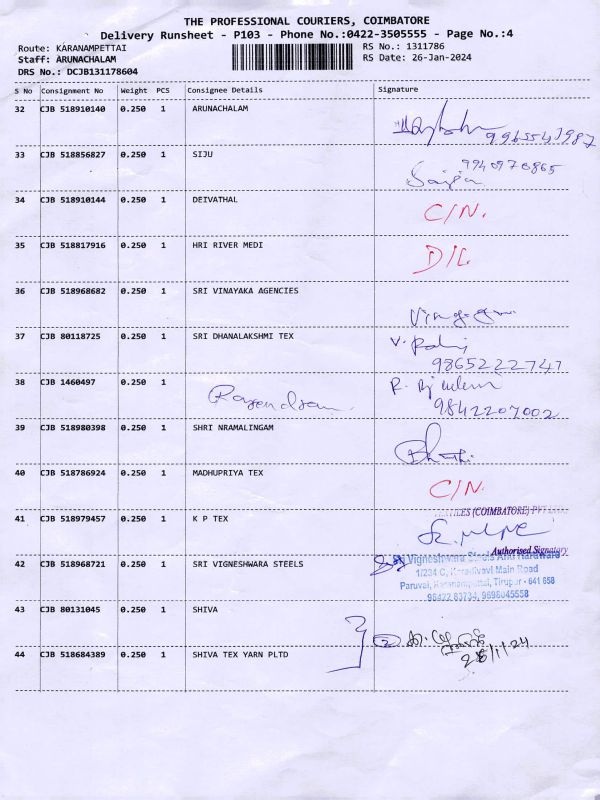 THE PROFESSIONAL COURIERS, COIMBATORE
Delivery Runsheet - P103 - Phone No.:0422-3505555 - Page No.:4
Route: KARANAMPETTAI RS No.: 1311786
Staff: ARUNACHALAM RS Date: 26-Jan-2024
DRS No.: DCJB131178604
S No Consignment No Weight PCS Consignee Details Signature
32 CJB 518910140 0.250 1 ARUNACHALAM
33 CJB 518856827 0.250 1 SIJU
9940970865
34 CJB 518910144 0.250 1 DEIVATHAL C/N.
35 CJB 518817916 0.250 1 HRI RIVER MEDI D/L.
36 CJB 518968682 0.250 1 SRI VINAYAKA AGENCIES
37 CJB 80118725 0.250 1 SRI DHANALAKSHMI TEX
9865222747
38 CJB 1460497 0.250 1 Rajendran
9842207002
39 CJB 518980398 0.250 1 SHRI NRAMALINGAM
40 CJB 518786924 0.250 1 MADHUPRIYA TEX C/N.
(COIMBATORE)
41 CJB 518979457 0.250 1 K P TEX
Authorised Signatory
42 CJB 518968721 0.250 1 SRI VIGNESHWARA STEELS Sri Vigneshwara Steels And Hardware
1/234 C, Main Road
Paruvai, Karanampettai, Tirupur - 641 658
98422 83734, 9698045558
43 CJB 80131045 0.250 1 SHIVA
44 CJB 518684389 0.250 1 SHIVA TEX YARN PLTD